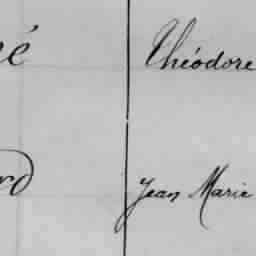 é Théodore
rd Jean Marie